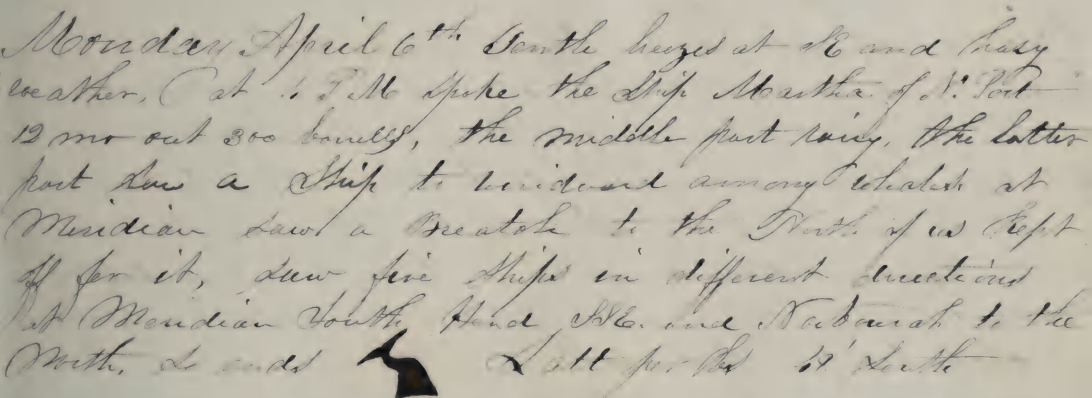 Monday April 6th Gentle breezes at SE and hasy
weather, at PM Spoke the Ship Martha of N. Port
12 mo out 300 barrells, the middle part rainy, the latter
part saw a Ship to windward among whales at
Meridian saw a Breatch to the North of us Kept
off for it, saw five Ships in different directions
at Meridian South Head and to the
North. So ends Latt per Obs South